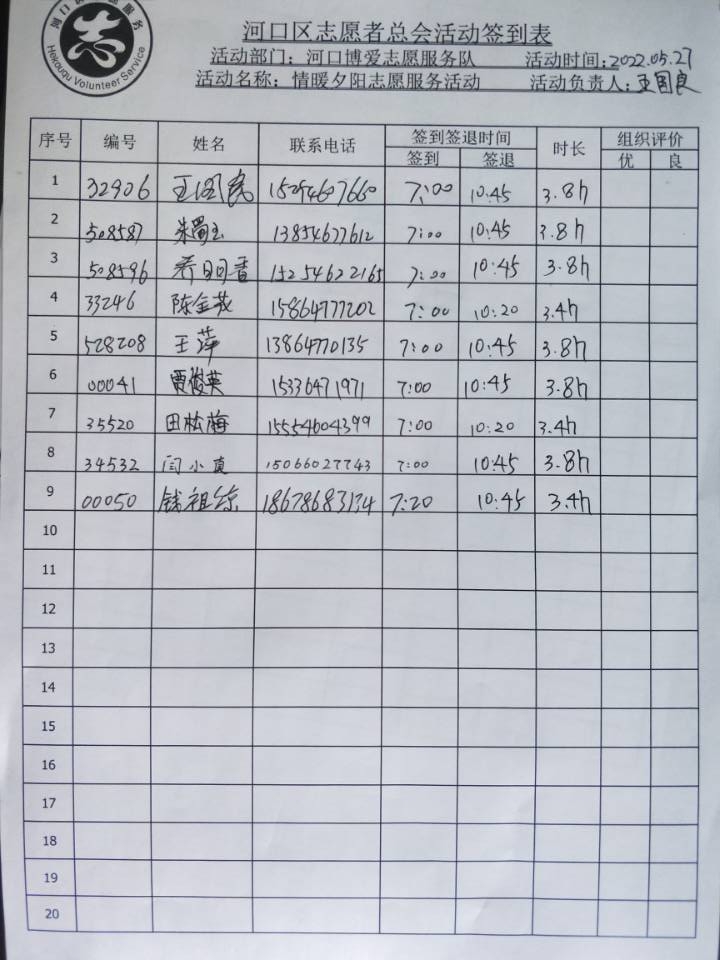 志
Hekouqu Volunteer Service
河口区志愿者总会活动签到表
活动部门：河口博爱志愿服务队 活动时间：2022.05.27
活动名称：情暖夕阳志愿服务活动 活动负责人：王国良
序号 编号 姓名 联系电话 签到签退时间 时长 组织评价
签到 签退 优 良
1 32906 15254607660 7:00 10:45 3.8h
2 508587 朱蜀玉 13854677612 7:00 10:45 3.8h
3 508596 乔日香 15254622165 7:00 10:45 3.8h
4 33246 陈金茂 15864777202 7:00 10:20 3.4h
5 528208 王萍 13864770135 7:00 10:45 3.8h
6 00041 贾俊英 15336471971 7:00 10:45 3.8h
7 35520 田松梅 15554604399 7:00 10:20 3.4h
8 34532 闫小真 15066027743 7:00 10:45 3.8h
9 00050 钱祖琼 18678683134 7:20 10:45 3.4h
10
11
12
13
14
15
16
17
18
19
20